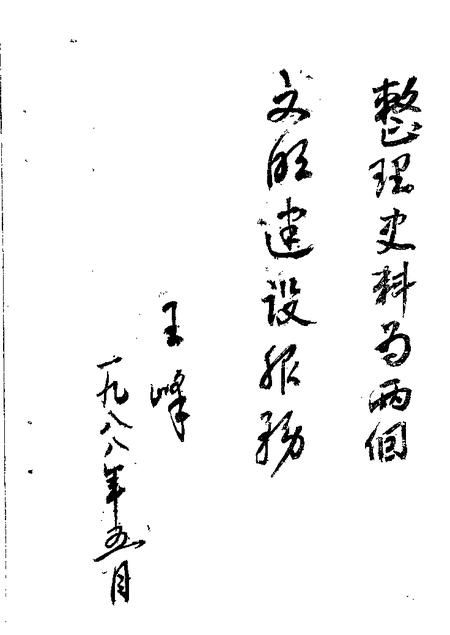 整理史料为两個
文明建设服務
王峰
一九八八年五月